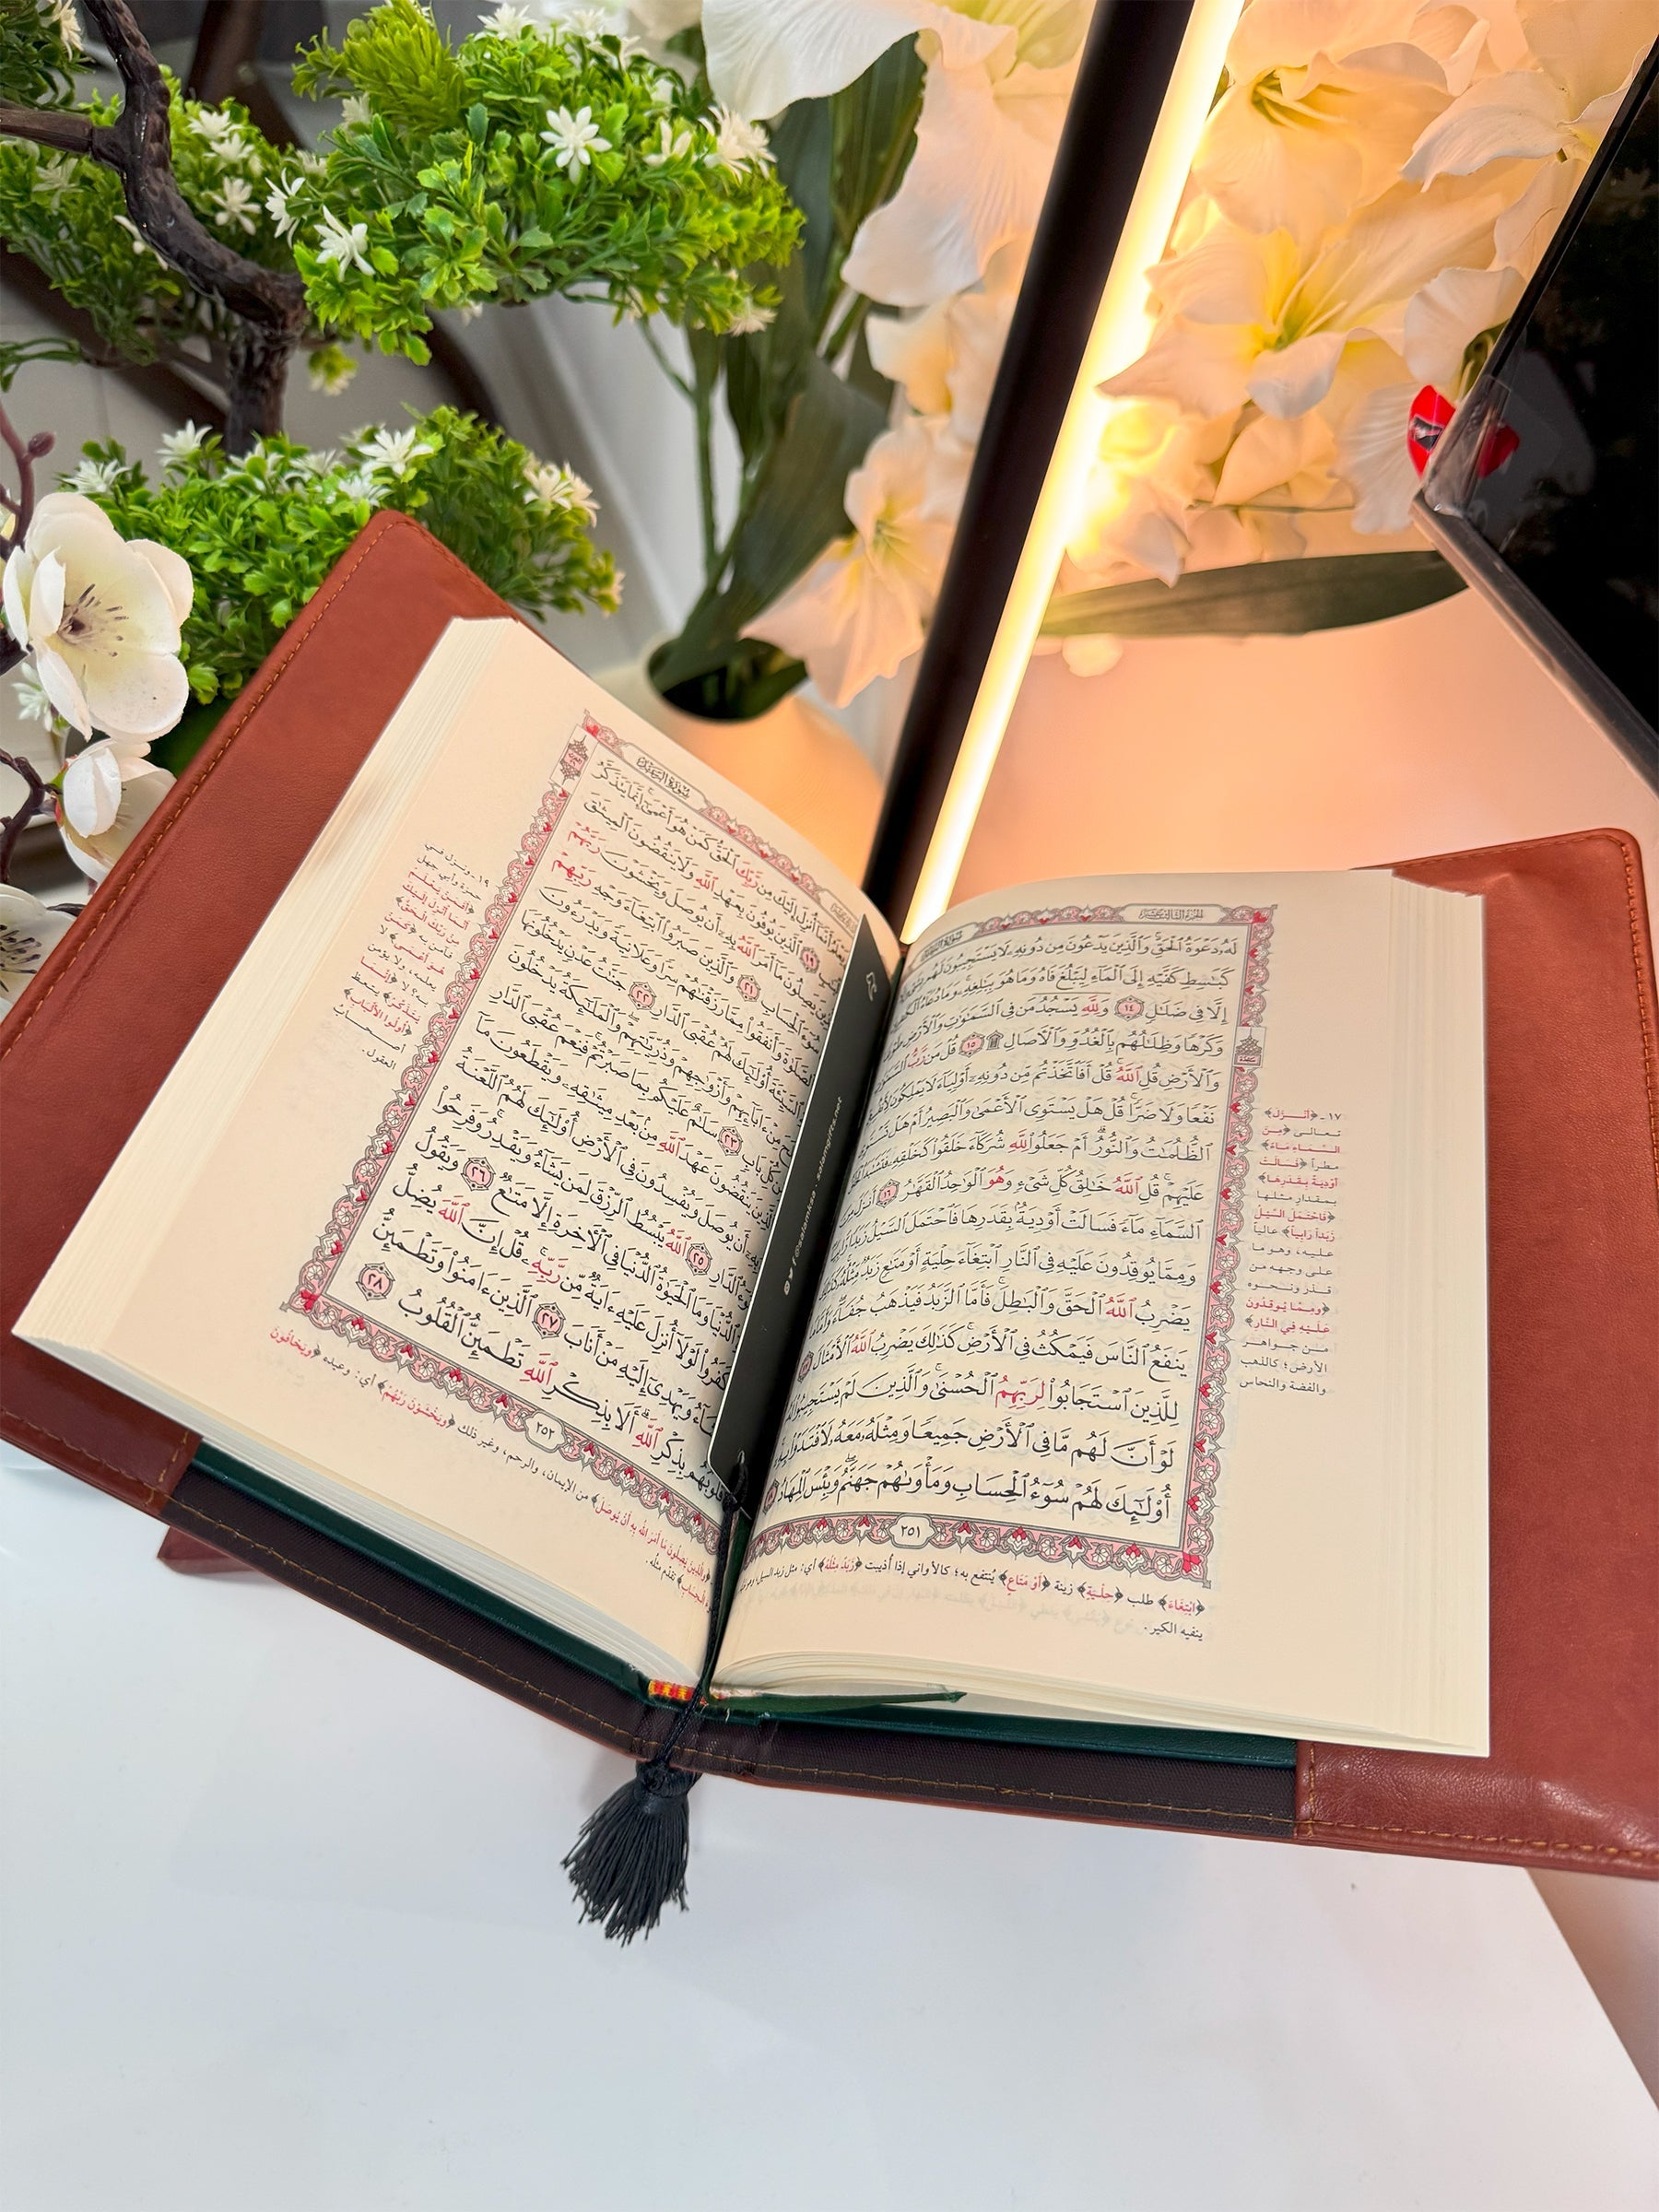 الجزء الثالث عشر
سورة الرعد
لَهُۥ دَعْوَةُ ٱلْحَقِّ ۖ وَٱلَّذِينَ يَدْعُونَ مِن دُونِهِۦ لَا يَسْتَجِيبُونَ لَهُم
كَبَـٰسِطِ كَفَّيْهِ إِلَى ٱلْمَآءِ لِيَبْلُغَ فَاهُ وَمَا هُوَ بِبَـٰلِغِهِۦ ۚ وَمَا دُعَآءُ
إِلَّا فِى ضَلَـٰلٍ ١٤ وَلِلَّهِ يَسْجُدُ مَن فِى ٱلسَّمَـٰوَٰتِ وَٱلْأَرْضِ
وَكَرْهًا وَظِلَـٰلُهُم بِٱلْغُدُوِّ وَٱلْـَٔاصَالِ ۩ ١٥ قُلْ مَن رَّبُّ
وَٱلْأَرْضِ قُلِ ٱللَّهُ ۚ قُلْ أَفَٱتَّخَذْتُم مِّن دُونِهِۦٓ أَوْلِيَآءَ لَا يَمْلِكُونَ
نَفْعًا وَلَا ضَرًّا ۚ قُلْ هَلْ يَسْتَوِى ٱلْأَعْمَىٰ وَٱلْبَصِيرُ أَمْ هَلْ
ٱلظُّلُمَـٰتُ وَٱلنُّورُ ۗ أَمْ جَعَلُوا۟ لِلَّهِ شُرَكَآءَ خَلَقُوا۟ كَخَلْقِهِۦ
عَلَيْهِمْ ۚ قُلِ ٱللَّهُ خَـٰلِقُ كُلِّ شَىْءٍ وَهُوَ ٱلْوَٰحِدُ ٱلْقَهَّـٰرُ ١٦ أَنزَلَ مِنَ
ٱلسَّمَآءِ مَآءً فَسَالَتْ أَوْدِيَةٌۢ بِقَدَرِهَا فَٱحْتَمَلَ ٱلسَّيْلُ زَبَدًا
وَمِمَّا يُوقِدُونَ عَلَيْهِ فِى ٱلنَّارِ ٱبْتِغَآءَ حِلْيَةٍ أَوْ مَتَـٰعٍ زَبَدٌ مِّثْلُهُۥ ۚ
يَضْرِبُ ٱللَّهُ ٱلْحَقَّ وَٱلْبَـٰطِلَ ۚ فَأَمَّا ٱلزَّبَدُ فَيَذْهَبُ جُفَآءً ۖ
يَنفَعُ ٱلنَّاسَ فَيَمْكُثُ فِى ٱلْأَرْضِ ۚ كَذَٰلِكَ يَضْرِبُ ٱللَّهُ ٱلْأَمْثَالَ
لِلَّذِينَ ٱسْتَجَابُوا۟ لِرَبِّهِمُ ٱلْحُسْنَىٰ ۚ وَٱلَّذِينَ لَمْ يَسْتَجِيبُوا۟
لَوْ أَنَّ لَهُم مَّا فِى ٱلْأَرْضِ جَمِيعًا وَمِثْلَهُۥ مَعَهُۥ لَٱفْتَدَوْا۟
أُو۟لَـٰٓئِكَ لَهُمْ سُوٓءُ ٱلْحِسَابِ وَمَأْوَىٰهُمْ جَهَنَّمُ ۖ وَبِئْسَ ٱلْمِهَادُ
٢٥١
١٧ـ ﴿أنـزل﴾
تعالى ﴿من
السماء ماء﴾
مطراً ﴿فسالت
أودية بقدرها﴾
بمقدار مثلها
﴿فاحتمل السيل
زبداً رابياً﴾ عالياً
عليه، وهو ما
على وجهه من
قذر ونحوه
﴿ومما يوقدون
عليه في النار﴾
من جواهر
الأرض؛ كالذهب
والفضة والنحاس
﴿ابتغاء﴾ طلب ﴿حلية﴾ زينة ﴿أو متاع﴾ يُنتفع به؛ كالأواني إذا أُذيبت ﴿زبد مثله﴾ أي: مثل زبد السيل، وهو
ينفيه الكير.
سورة الرعد
أُنزِلَ إِلَيْكَ مِن رَّبِّكَ ٱلْحَقُّ كَمَنْ هُوَ أَعْمَىٰٓ ۚ إِنَّمَا يَتَذَكَّرُ
١٩ ٱلَّذِينَ يُوفُونَ بِعَهْدِ ٱللَّهِ وَلَا يَنقُضُونَ ٱلْمِيثَـٰقَ
يَصِلُونَ مَآ أَمَرَ ٱللَّهُ بِهِۦٓ أَن يُوصَلَ وَيَخْشَوْنَ رَبَّهُمْ
سُوٓءَ ٱلْحِسَابِ ٢١ وَٱلَّذِينَ صَبَرُوا۟ ٱبْتِغَآءَ وَجْهِ رَبِّهِمْ
ٱلصَّلَوٰةَ وَأَنفَقُوا۟ مِمَّا رَزَقْنَـٰهُمْ سِرًّا وَعَلَانِيَةً وَيَدْرَءُونَ
ٱلسَّيِّئَةَ أُو۟لَـٰٓئِكَ لَهُمْ عُقْبَى ٱلدَّارِ ٢٢ جَنَّـٰتُ عَدْنٍ يَدْخُلُونَهَا
مِنْ ءَابَآئِهِمْ وَأَزْوَٰجِهِمْ وَذُرِّيَّـٰتِهِمْ ۖ وَٱلْمَلَـٰٓئِكَةُ يَدْخُلُونَ
كُلِّ بَابٍ ٢٣ سَلَـٰمٌ عَلَيْكُم بِمَا صَبَرْتُمْ ۚ فَنِعْمَ عُقْبَى ٱلدَّارِ
يَنقُضُونَ عَهْدَ ٱللَّهِ مِنۢ بَعْدِ مِيثَـٰقِهِۦ وَيَقْطَعُونَ مَآ
أَن يُوصَلَ وَيُفْسِدُونَ فِى ٱلْأَرْضِ ۙ أُو۟لَـٰٓئِكَ لَهُمُ ٱللَّعْنَةُ
ٱلدَّارِ ٢٥ ٱللَّهُ يَبْسُطُ ٱلرِّزْقَ لِمَن يَشَآءُ وَيَقْدِرُ ۚ وَفَرِحُوا۟
ٱلدُّنْيَا وَمَا ٱلْحَيَوٰةُ ٱلدُّنْيَا فِى ٱلْـَٔاخِرَةِ إِلَّا مَتَـٰعٌ ٢٦ وَيَقُولُ
كَفَرُوا۟ لَوْلَآ أُنزِلَ عَلَيْهِ ءَايَةٌ مِّن رَّبِّهِۦ ۗ قُلْ إِنَّ ٱللَّهَ يُضِلُّ
وَيَهْدِىٓ إِلَيْهِ مَنْ أَنَابَ ٢٧ ٱلَّذِينَ ءَامَنُوا۟ وَتَطْمَئِنُّ
قُلُوبُهُم بِذِكْرِ ٱللَّهِ ۗ أَلَا بِذِكْرِ ٱللَّهِ تَطْمَئِنُّ ٱلْقُلُوبُ ٢٨
٢٥٢
١٩ـ ونـزل في
حمزة وأبي جهل
﴿أفمن يعلم
أنما أنزل إليك
من ربك الحق﴾
فآمن به ﴿كمن
هو أعمى﴾ لا
يعلمه، ولا يؤمن
به؟ لا ﴿إنما
يتذكر﴾ يتعظ
﴿أولوا الألباب﴾
أصـحـاب
العقول.
﴿والذين يصلون ما أمر الله به أن يوصل﴾ من الإيمان، والرحم، وغير ذلك ﴿ويخشون ربهم﴾ أي: وعيده ﴿ويخافون
الحساب﴾ تقدم مثله.
@salamksa . salamgifts.net